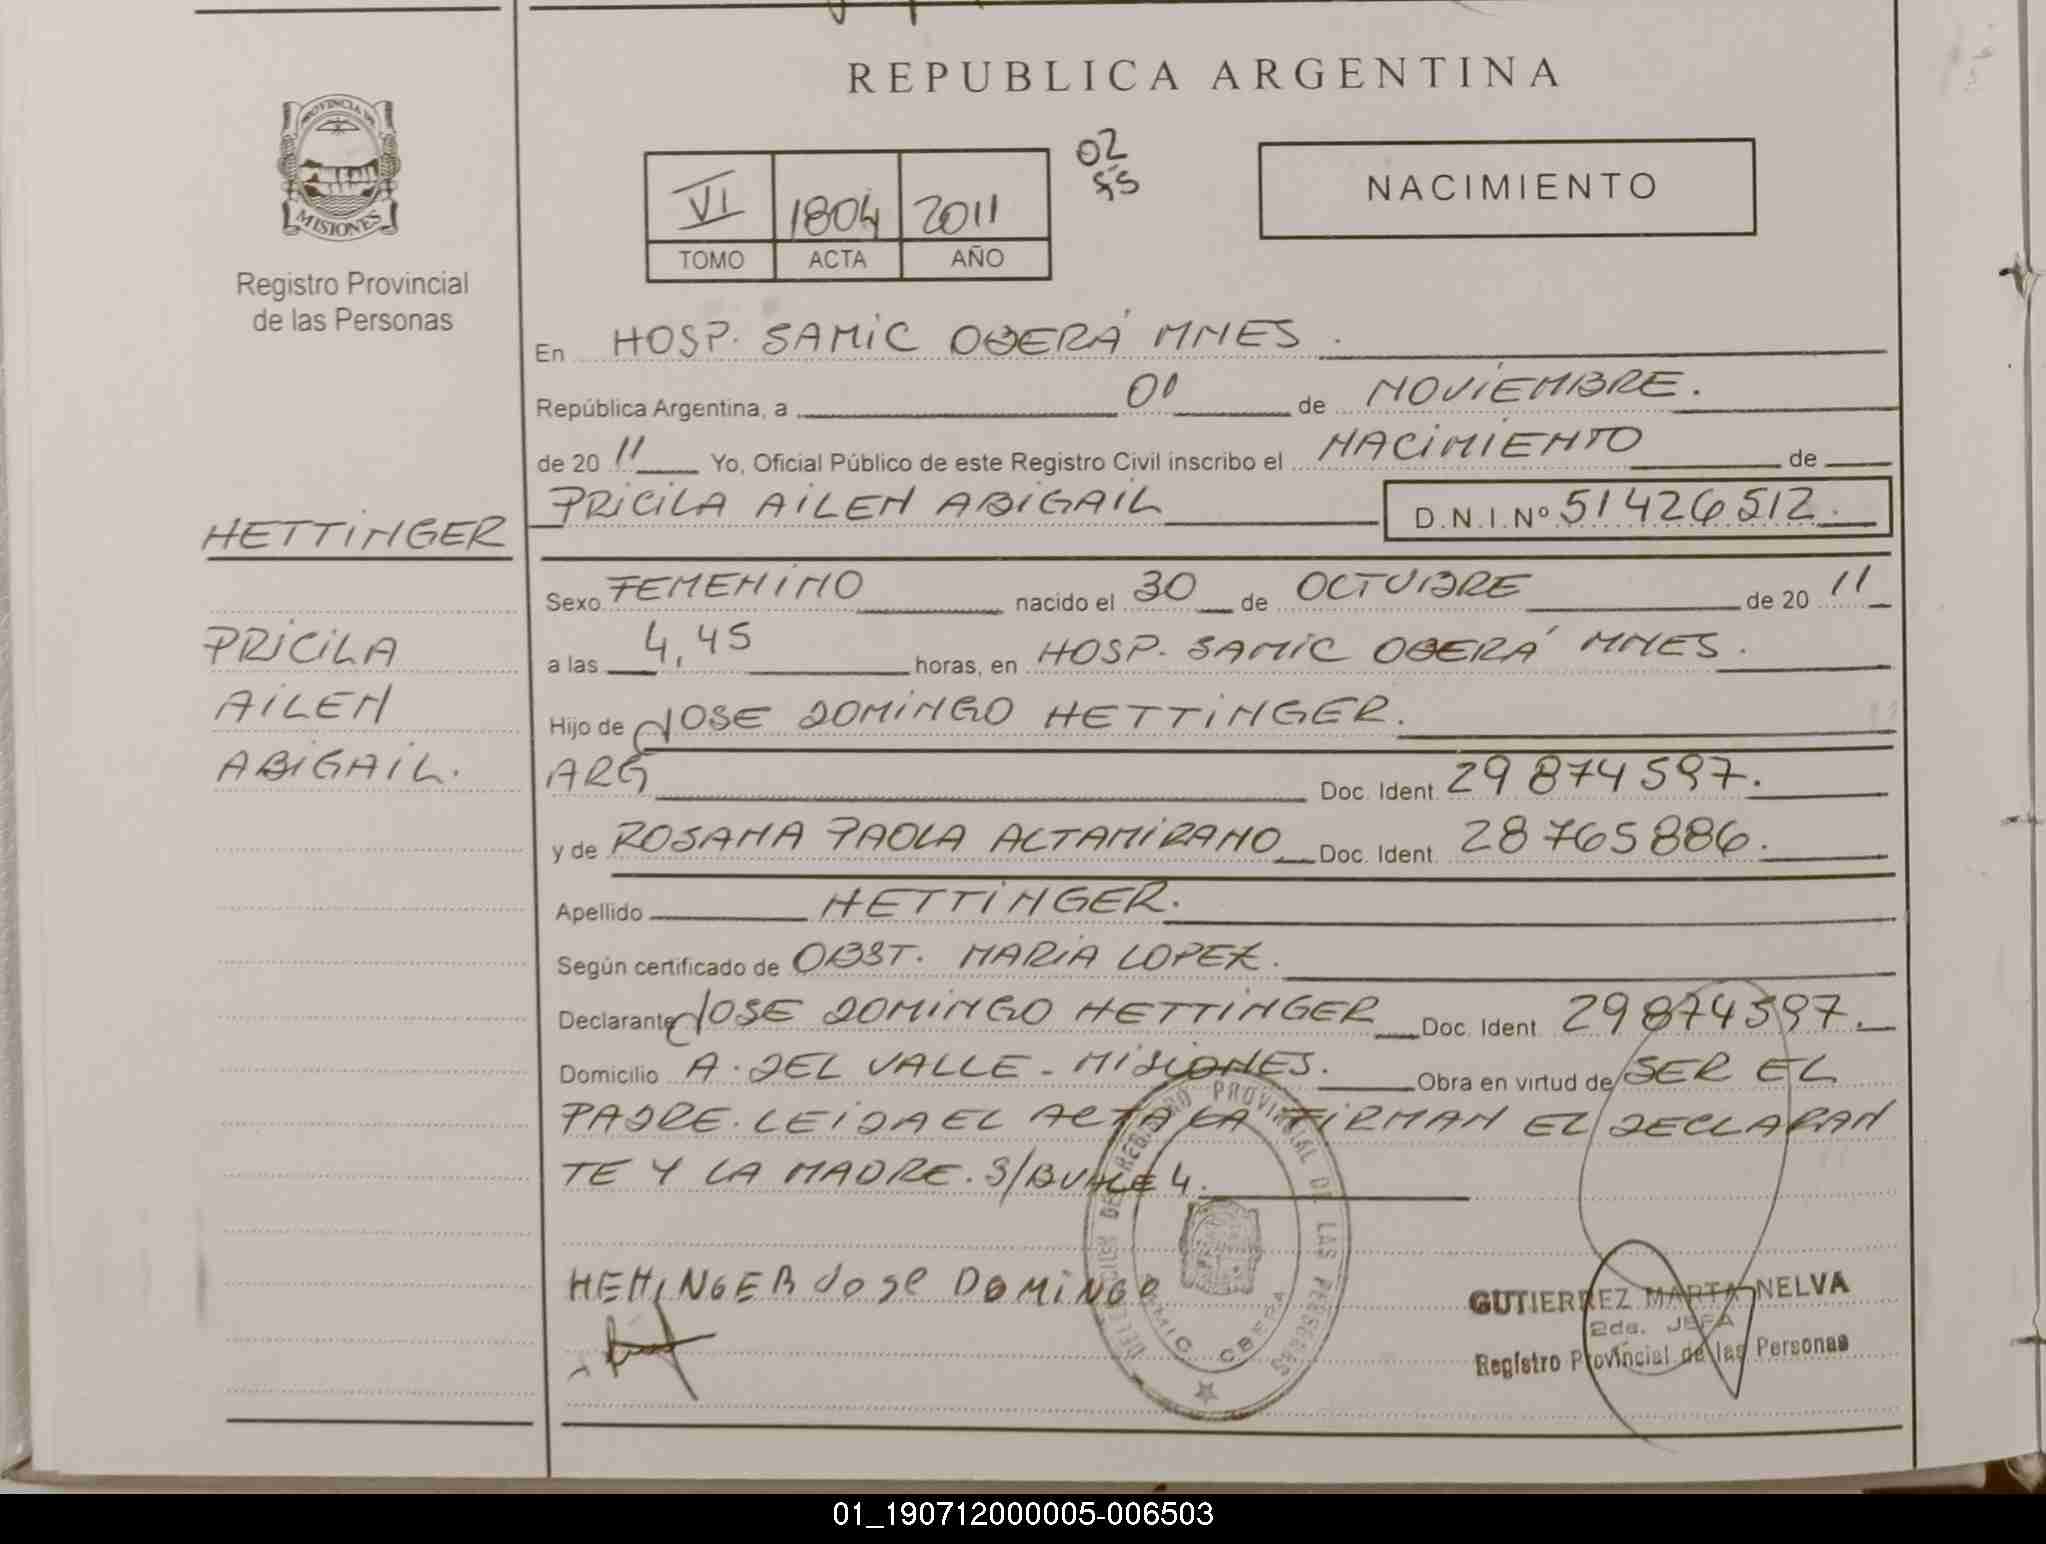 REPUBLICA ARGENTINA
PROVINCIA DE
MISIONES
Registro Provincial
de las Personas
VI 1804 2011
TOMO ACTA AÑO
02
NACIMIENTO
En HOSP. SAMIC OBERÁ MNES.
República Argentina, a 01 de NOVIEMBRE.
de 20 11 Yo, Oficial Público de este Registro Civil inscribo el NACIMIENTO de
PRICILA AILEN ABIGAIL D.N.I. Nº 51426512.
HETTINGER
PRICILA
AILEN
ABIGAIL.
Sexo FEMENINO nacido el 30 de OCTUBRE de 20 11
a las 4,45 horas, en HOSP. SAMIC OBERÁ MNES.
Hijo de JOSE DOMINGO HETTINGER.
ARG Doc. Ident. 29874597.
y de ROSANA PAOLA ALTAMIRANO Doc. Ident. 28765886.
Apellido HETTINGER.
Según certificado de OBST. MARIA LOPEZ.
Declarante JOSE DOMINGO HETTINGER Doc. Ident. 29874597.
Domicilio A. DEL VALLE - MISIONES. Obra en virtud de SER EL
PADRE. LEIDA EL ACTA LA FIRMAN EL DECLARAN
TE Y LA MADRE. S/BUALE 4.
HETTINGER JOSE DOMINGO
DELEGACION DEL REGISTRO PROVINCIAL DE LAS PERSONAS
SAMIC OBERA
GUTIERREZ MARTA NELVA
2da. JEFA
Registro Provincial de las Personas
01_190712000005-006503